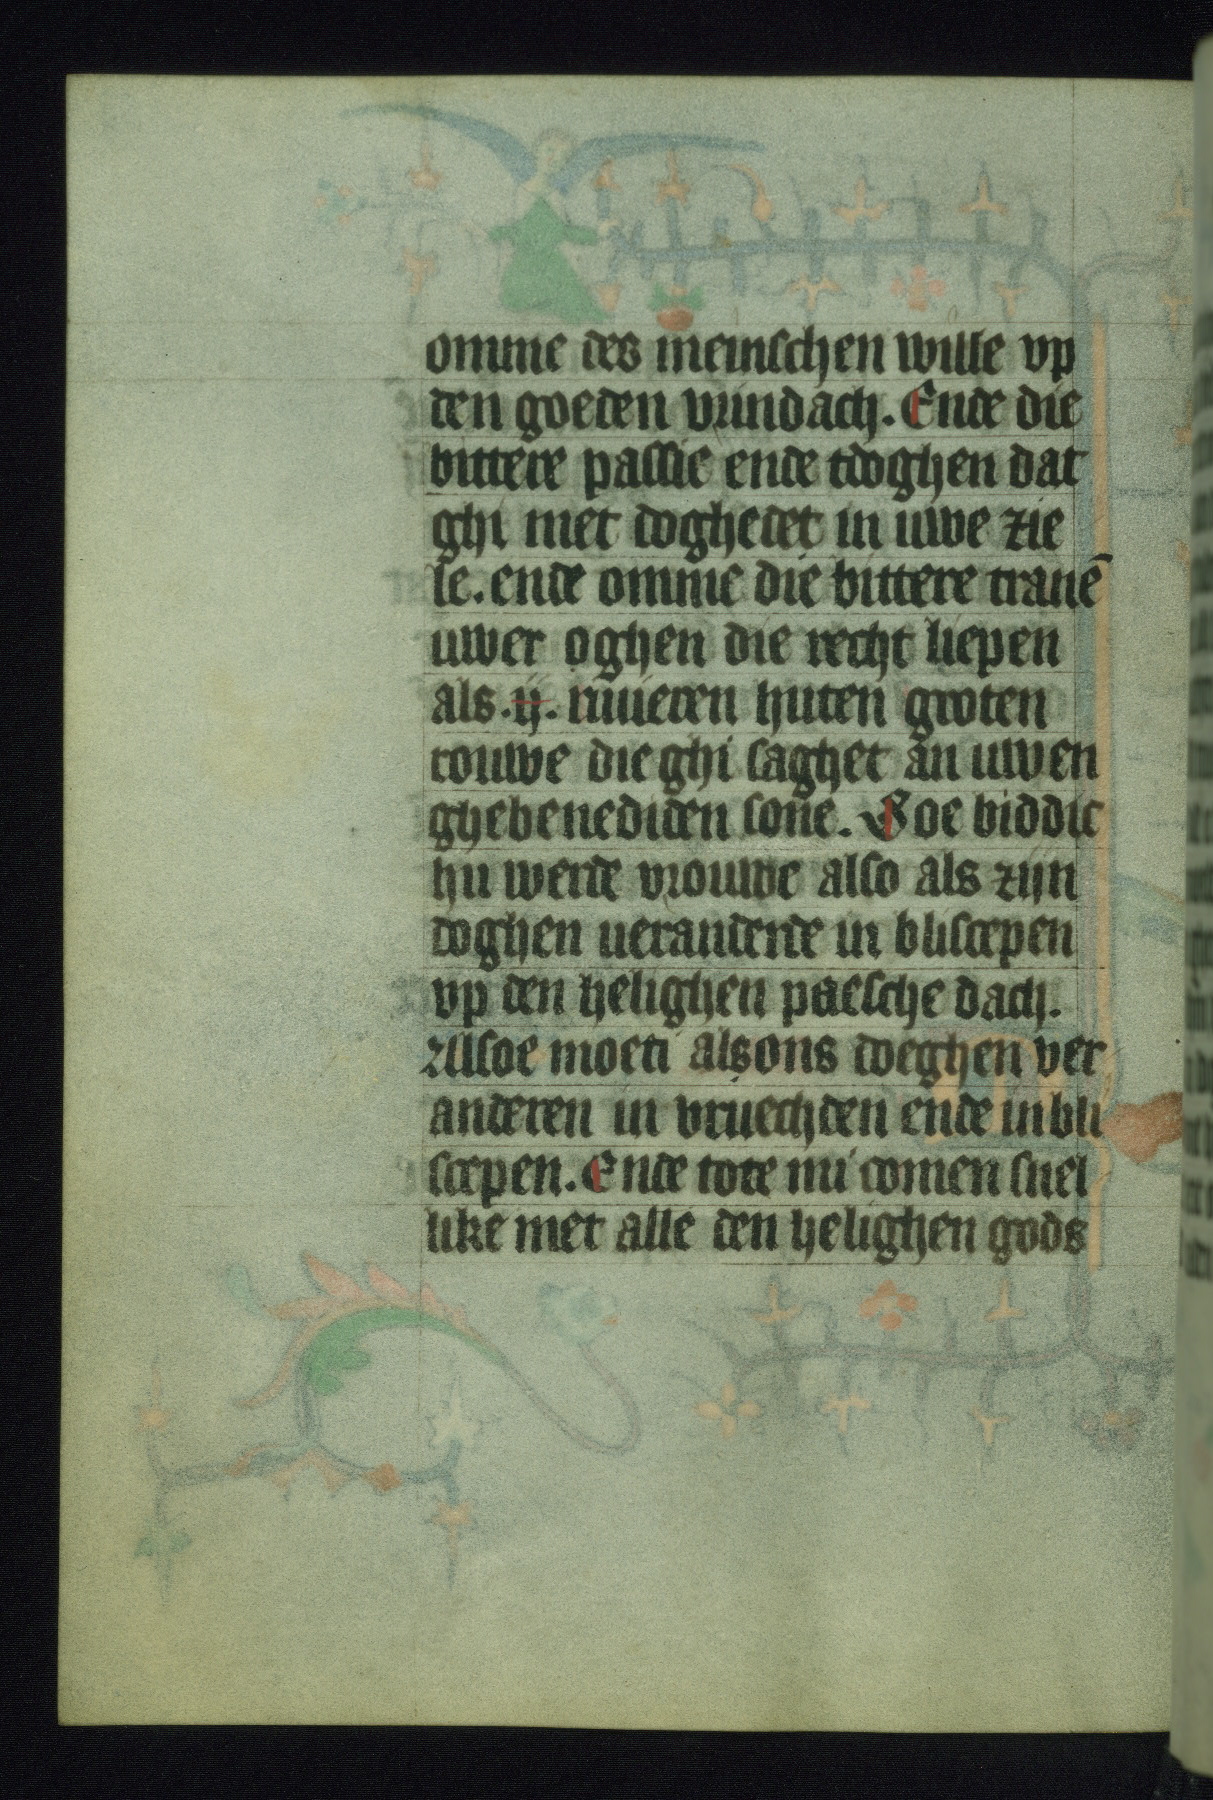 omme des meinschen wille vp
den goeden vrindach. Ende die
bittere passie ende tdoghen dat
ghi met doghedet in uwe zie
le. ende omme die bittere tranē
uwer oghen die recht liepen
als .ij. riuieren huten groten
rouwe die ghi saghet an uwen
ghebenediden sone. Soe biddic
hu werde vrouwe also als zijn
doghen ueranderde in bliscepen
vp den helighen paesche dach.
Alsoe moeti als ons doeghen ver
anderen in vruechden ende in bli
scepen. Ende tote mi comen snel
like met alle den helighen gods